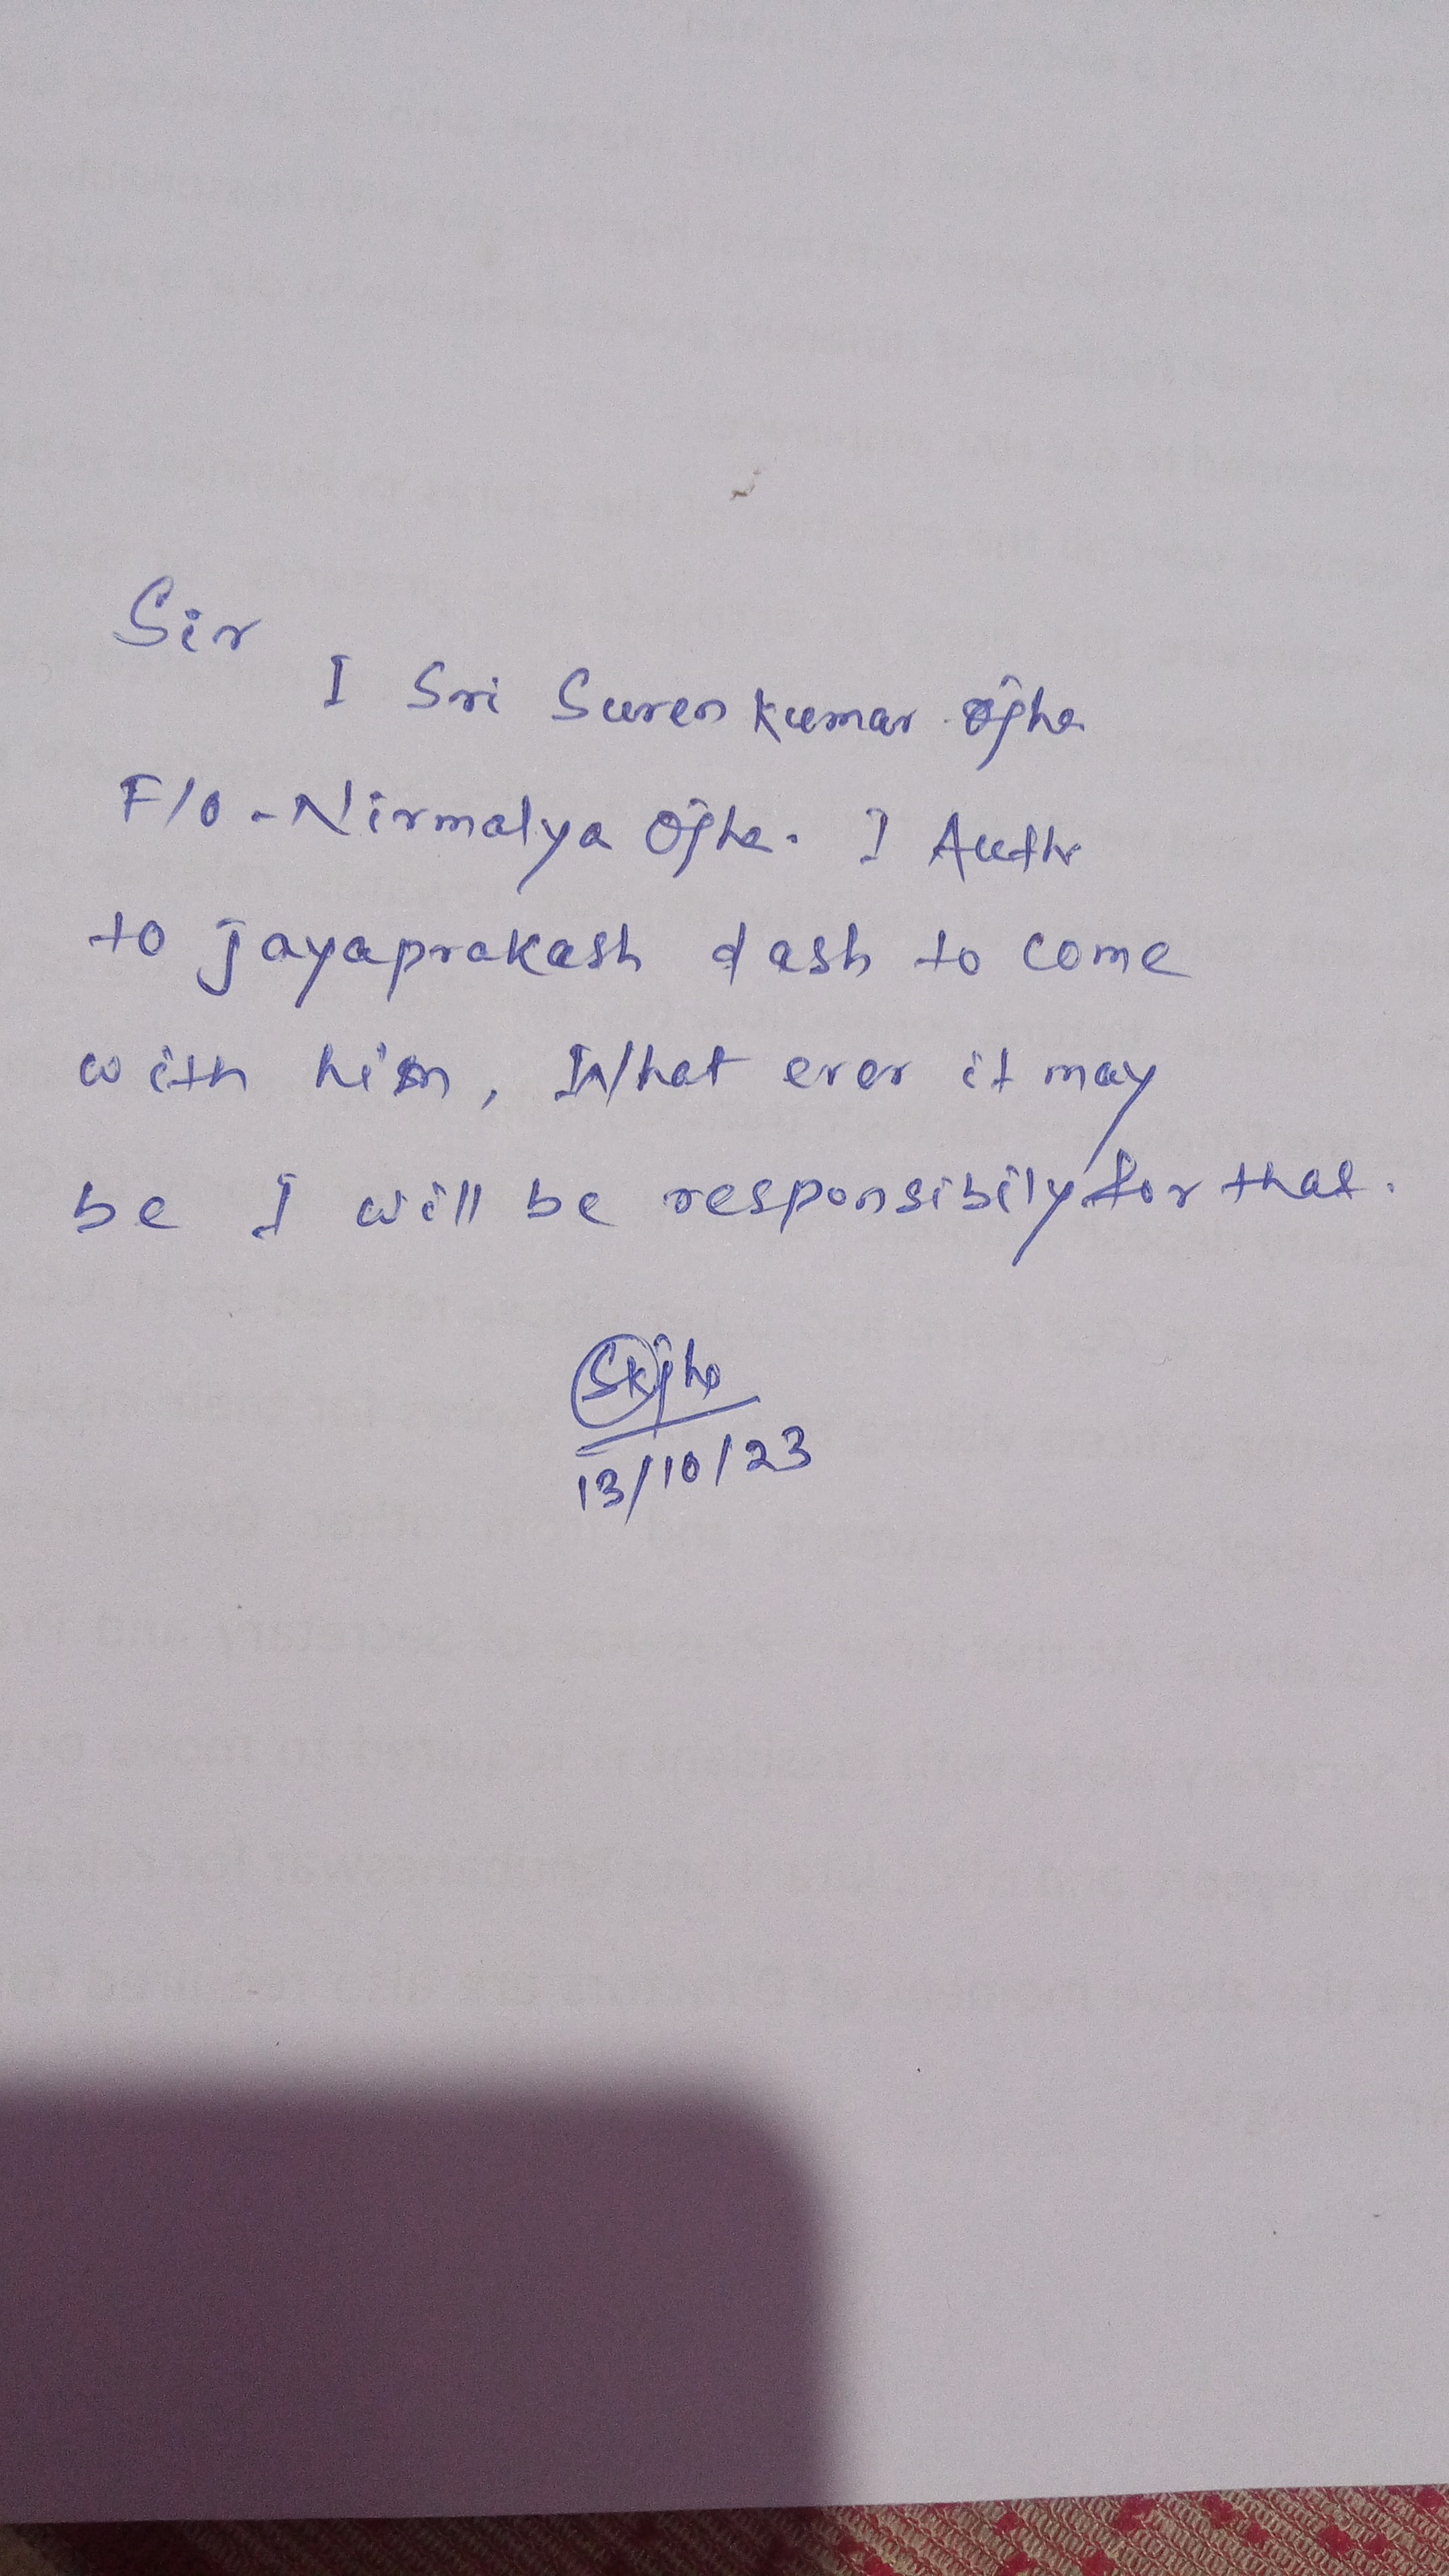 Sir
I Sri Suren kumar Ojha
F/O - Nirmalya Ojha. I Auth
to jayaprakash dash to come
with him, What ever it may
be I will be responsibily for that.
Skjha
13/10/23